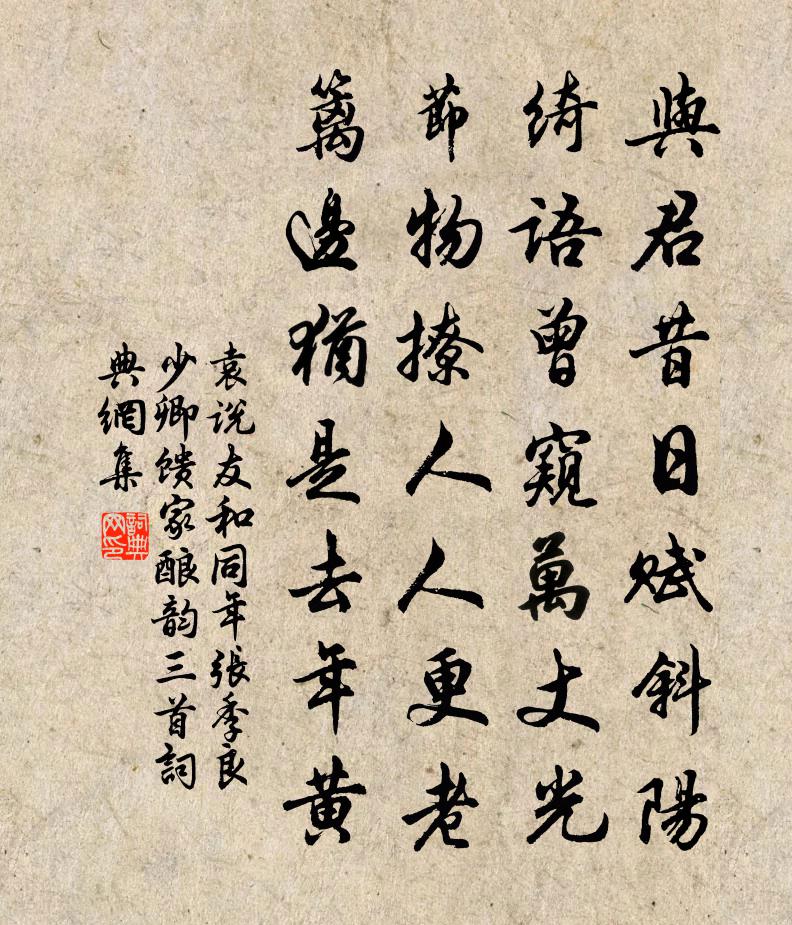 與君昔日賦斜陽
綺語曾窺萬丈光
節物撩人人更老
籬邊猶是去年黃
袁说友和同年張季良
少卿馈家酿韵三首詞
典網集
詞典网印